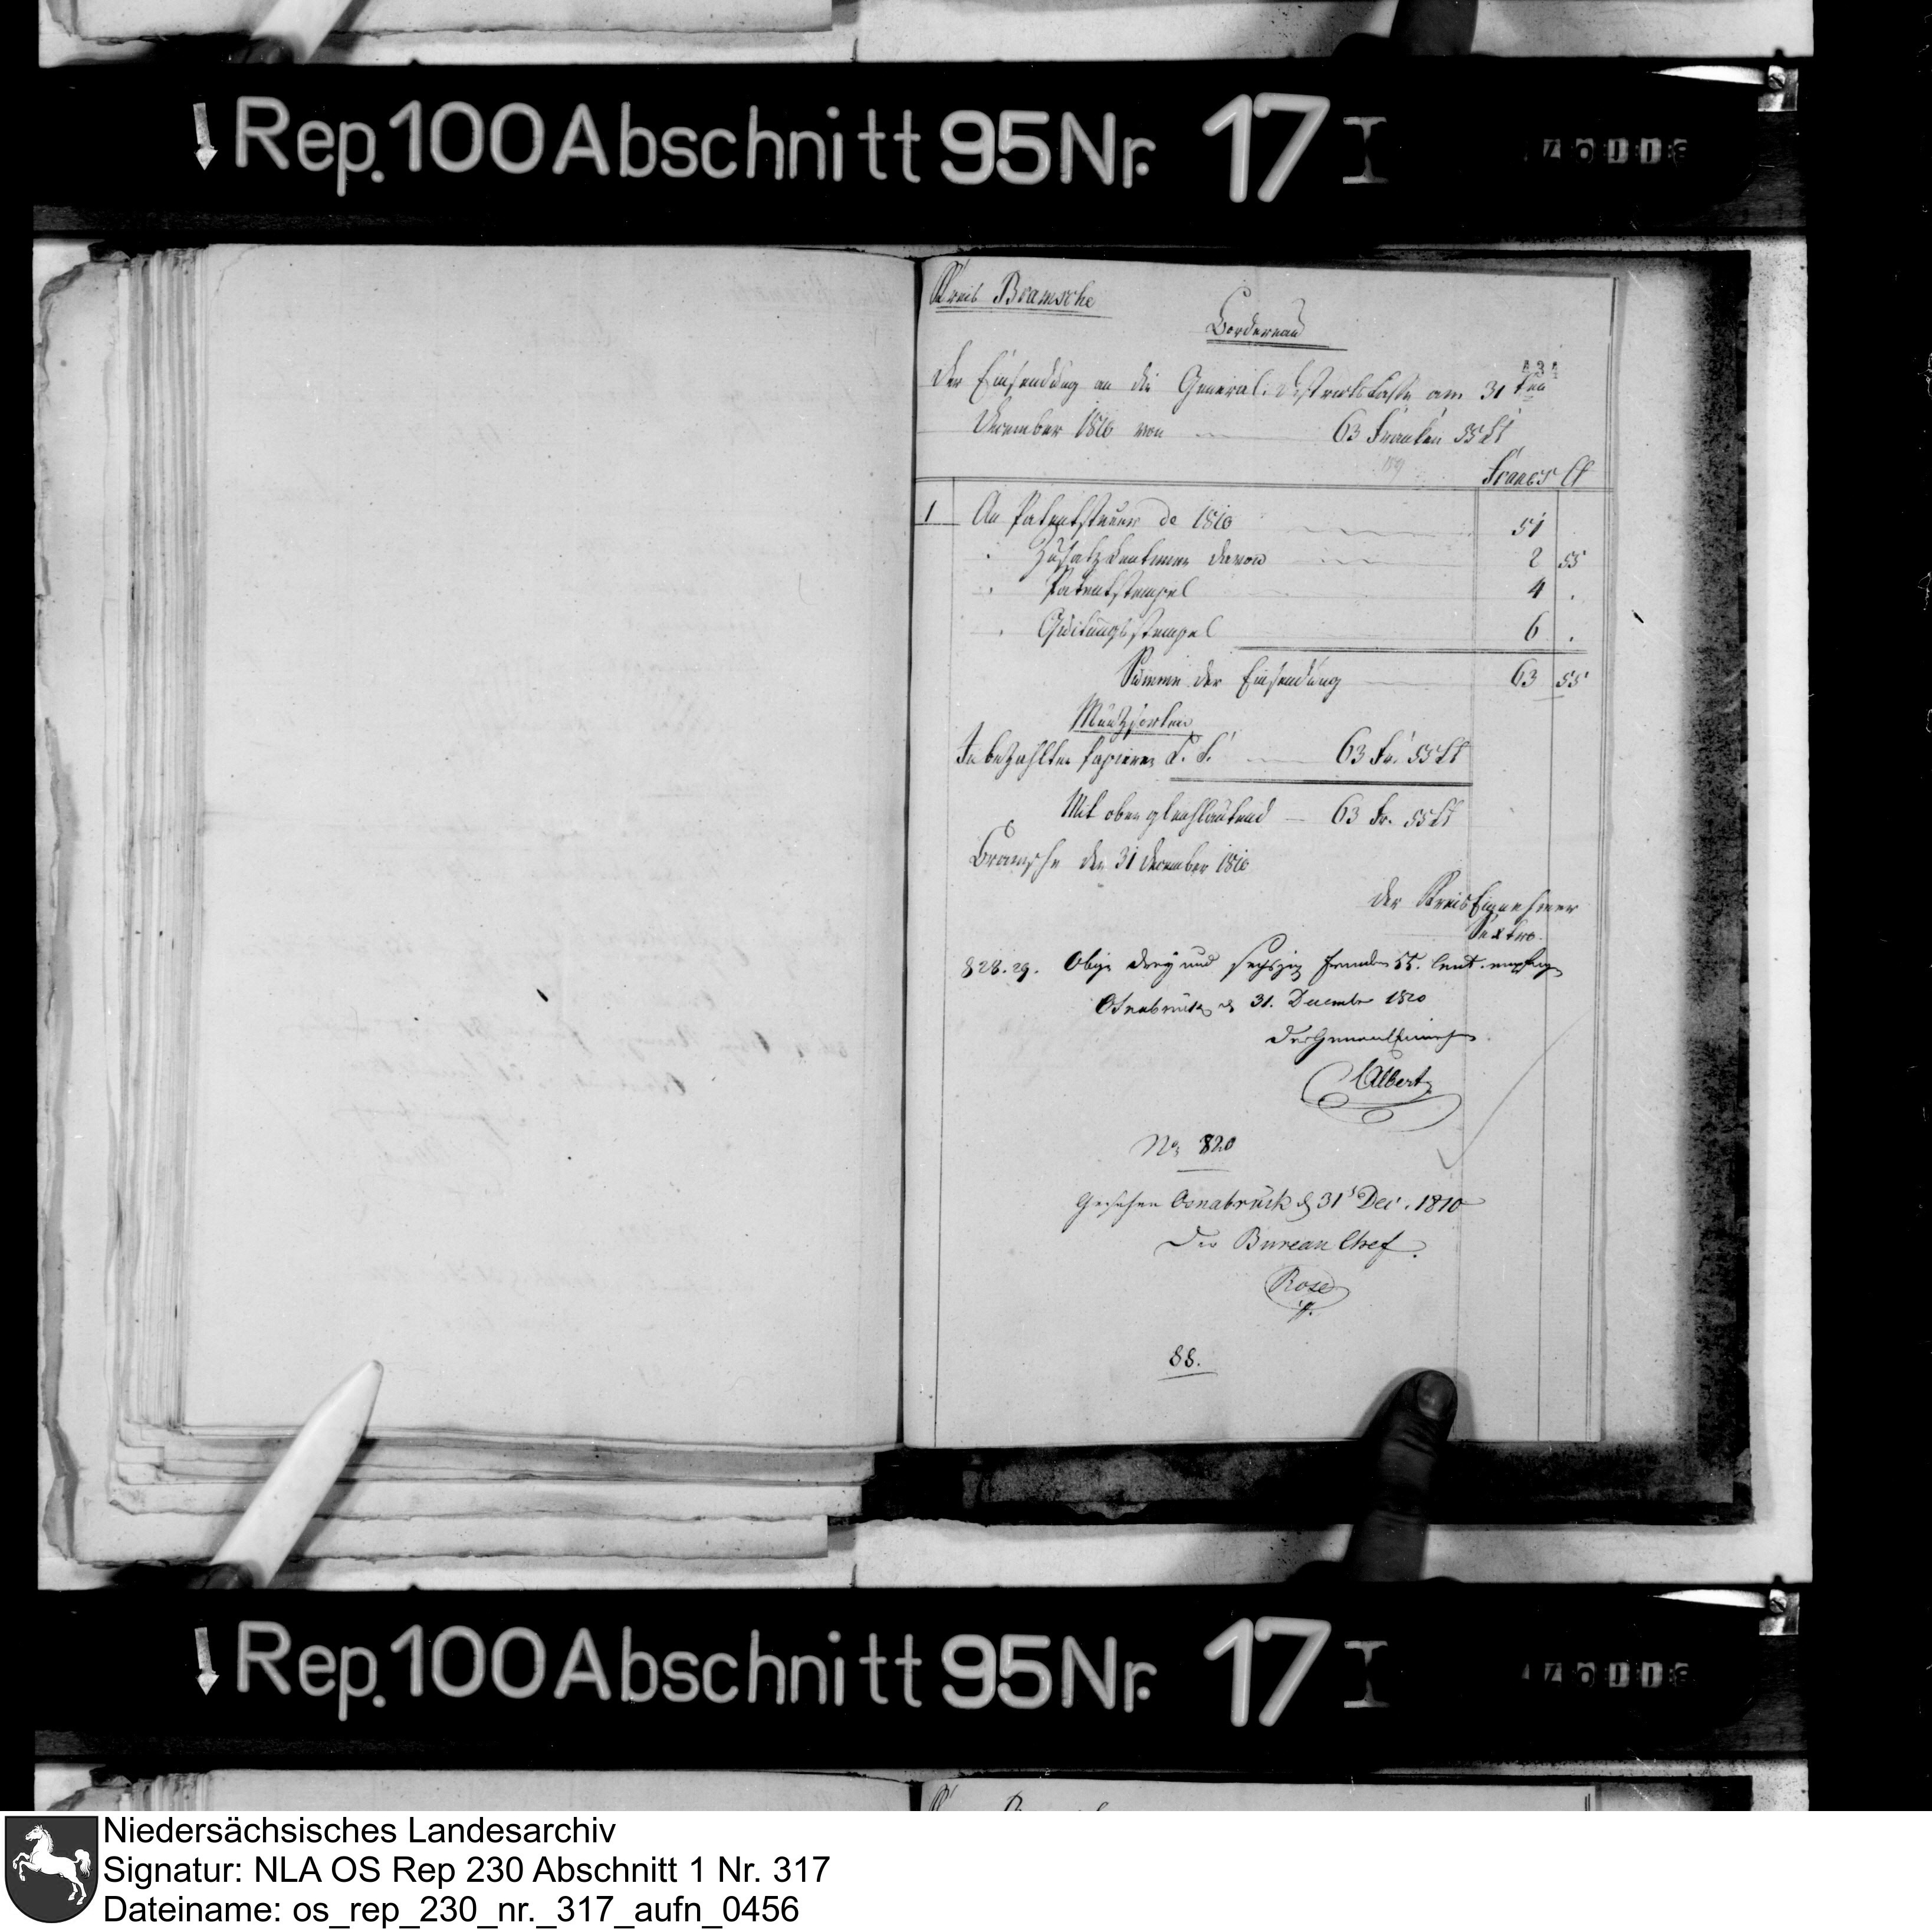 Rep. 100 Abschnitt 95 Nr. 17 I
Kreis Bramsche
Bordereau
434
der Einsendung an die General-Districtskasse am 31ten
December 1810 von 63 Franken 55 Ct
Francs Ct
1 An Patentsteuer de 1810 51
" Zusatz Centimen davon 2 55
" Patentstempel 4 .
" Quitungsstempel 6 .
Summe der Einsendung 63 55
Müntzsorten
In bezahlten Papieren 63 Fr. 55 Ct
Mit oben gleichlautend 63 Fr. 55 Ct
Bramsche den 31 December 1810
Der Kreis Einnehmer
Sextro.
828.29. Obige drey und sechszig Franken 55. Cent. empfing
Osnabrück d 31. December 1810
Der
CAlbertz
No 820
Gesehen Osnabrück d 31 Dec. 1810
Der Bureau Chef.
Rose
88.
Rep. 100 Abschnitt 95 Nr. 17 I
Niedersächsisches Landesarchiv
Signatur: NLA OS Rep 230 Abschnitt 1 Nr. 317
Dateiname: os_rep_230_nr._317_aufn_0456